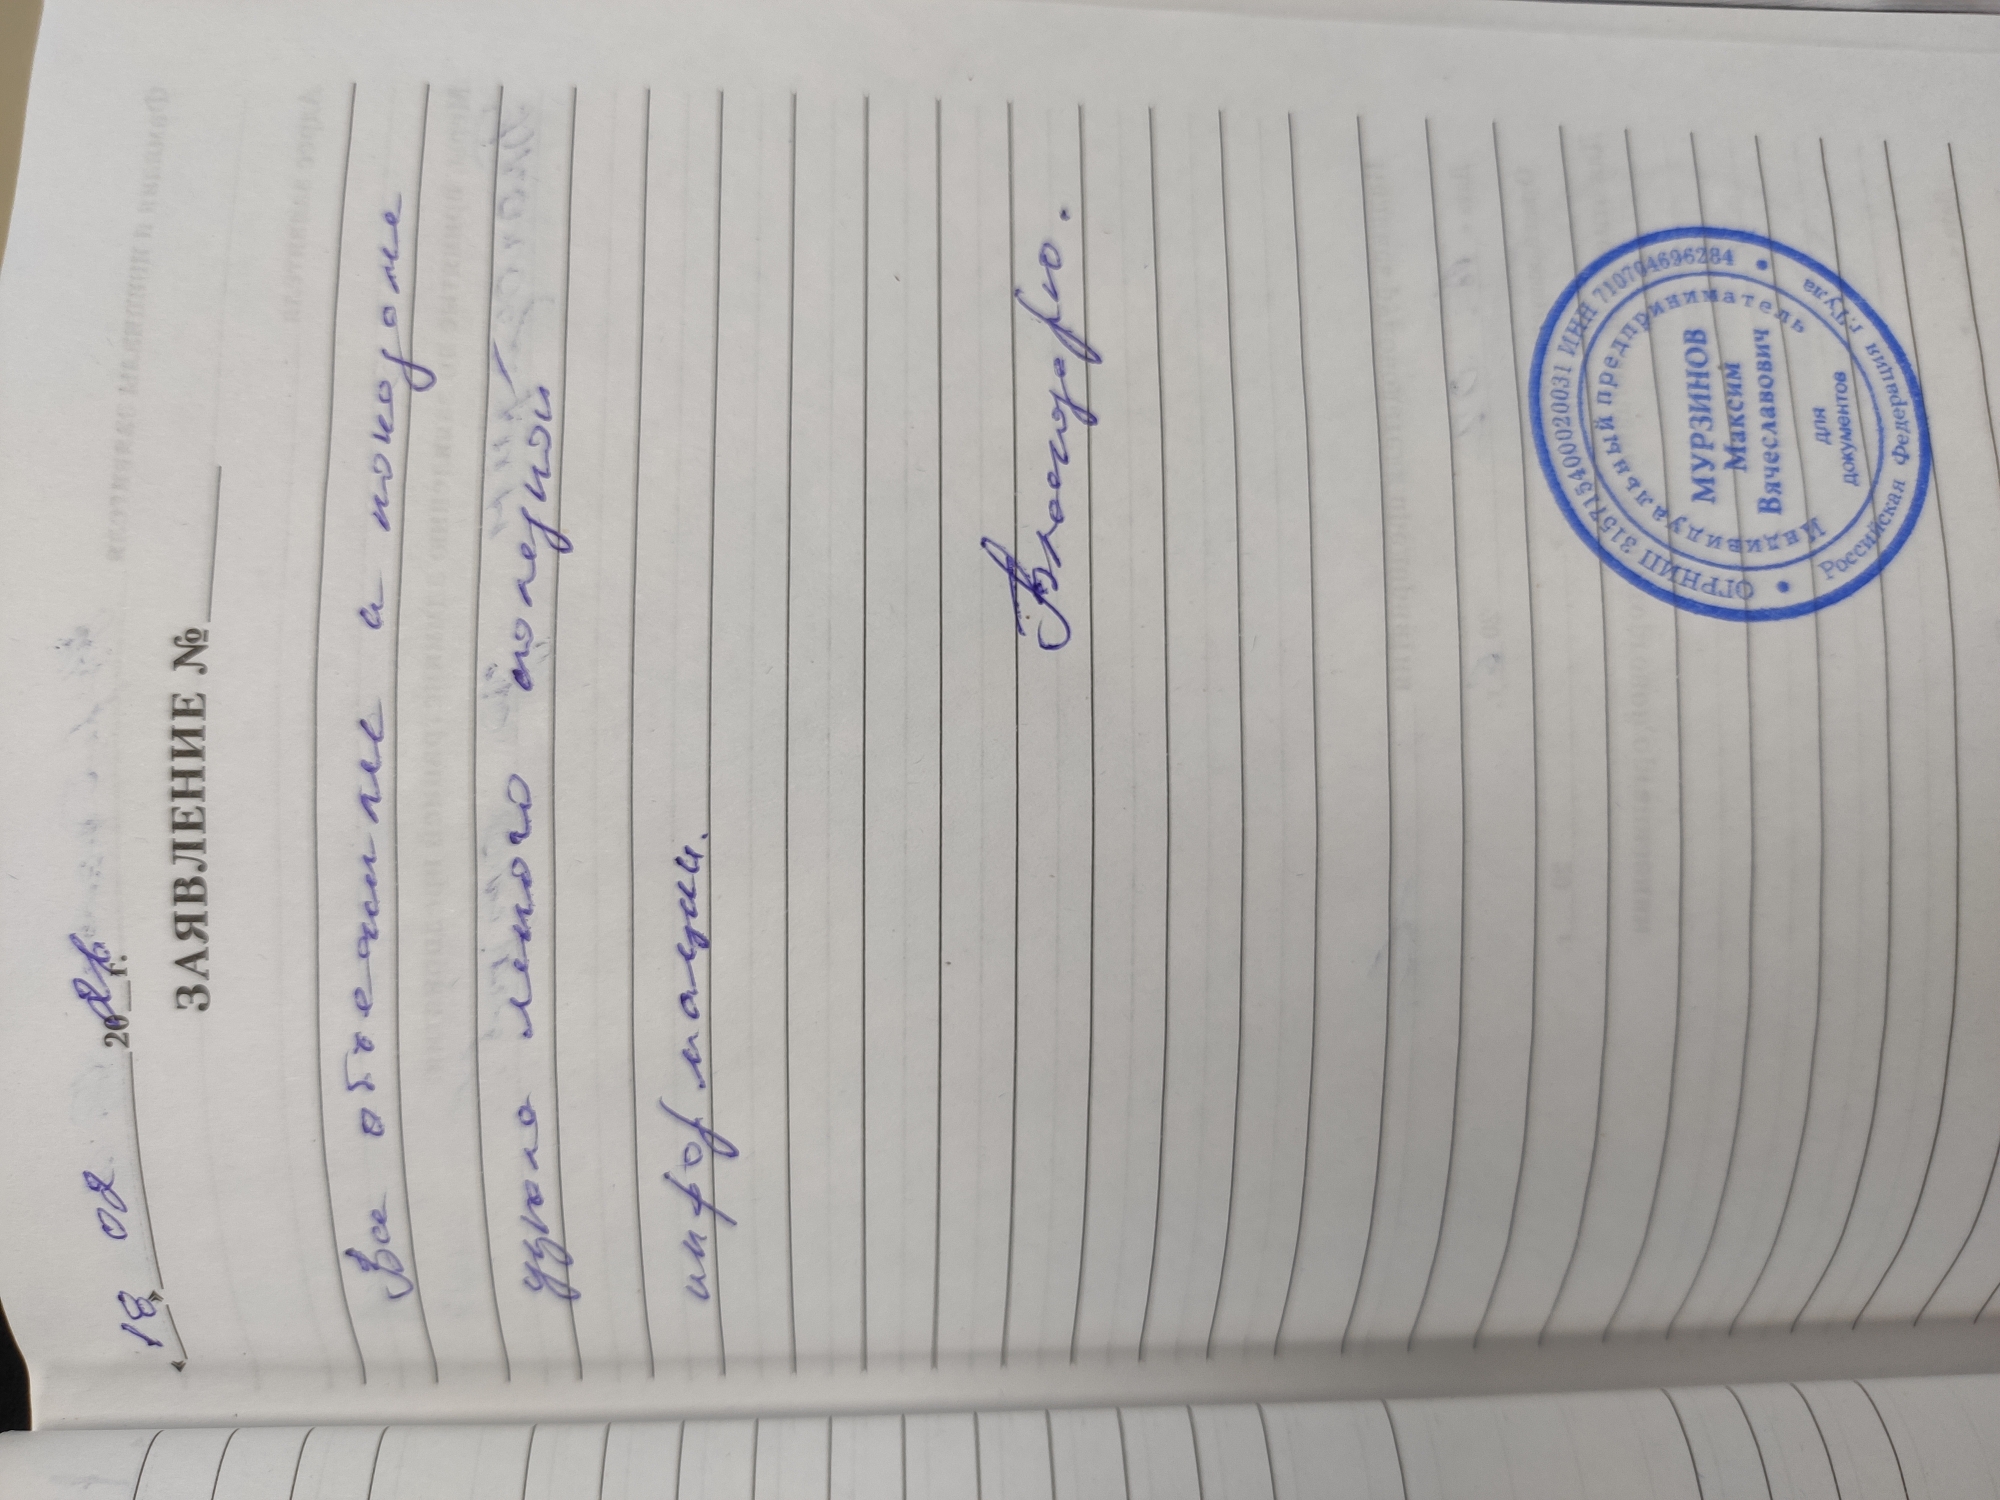 «18» 02 20 г.
ЗАЯВЛЕНИЕ №
Все объеснили и показоли
узнола много полезной
информации.
Благодарю.
ОГРНИП 315715400020031 ИНН 710704696284
Российская Федерация г.Тула
Индивидуальный предприниматель
МУРЗИНОВ
Максим
Вячеславович
для
документов